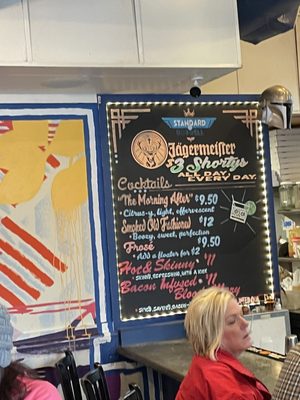 STANDARD
Jägermeister
$3 Shortys
ALL DAY,
EVERY DAY.
Cocktails
"The Morning After" $9.50
Citrus-y, light, effervescent
Smoked Old Fashioned $12
Boozy, sweet, perfection
Frosé $9.50
Add a floater for $2
Hot & Skinny $11
Bacon Infused $11
Bloody